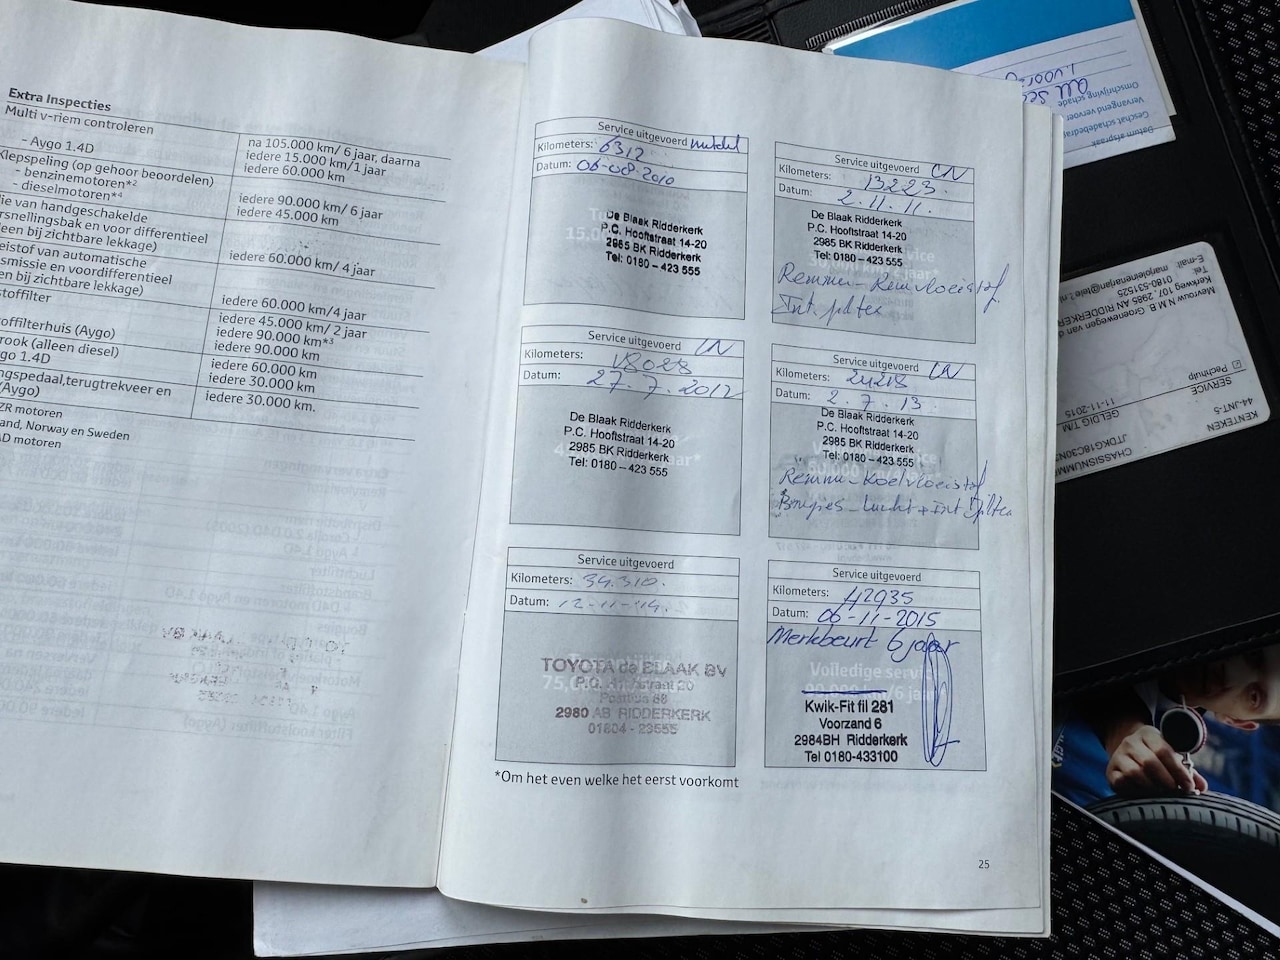 Extra Inspecties
Multi v-riem controleren
- Aygo 1.4D
na 105.000 km/ 6 jaar, daarna
iedere 15.000 km/1 jaar
iedere 60.000 km
Klepspeling (op gehoor beoordelen)
- benzinemotoren*2
- dieselmotoren*4
iedere 90.000 km/ 6 jaar
iedere 45.000 km
lie van handgeschakelde
rsnellingsbak en voor differentieel
leen bij zichtbare lekkage)
iedere 60.000 km/ 4 jaar
eistof van automatische
smissie en voordifferentieel
en bij zichtbare lekkage)
iedere 60.000 km/4 jaar
stoffilter
iedere 45.000 km/ 2 jaar
offilterhuis (Aygo)
iedere 90.000 km*3
rook (alleen diesel)
iedere 90.000 km
go 1.4D
iedere 60.000 km
iedere 30.000 km
ngspedaal,terugtrekveer en
(Aygo)
iedere 30.000 km.
ZR motoren
and, Norway en Sweden
AD motoren
Service uitgevoerd
Kilometers: 6312
Datum: 06-08-2010
De Blaak Ridderkerk
P.C. Hooftstraat 14-20
2985 BK Ridderkerk
Tel: 0180 – 423 555
Service uitgevoerd CN
Kilometers: 13223.
Datum: 2.11.11.
De Blaak Ridderkerk
P.C. Hooftstraat 14-20
2985 BK Ridderkerk
Tel: 0180 – 423 555
Remmen-Remvloeistof
Int. filter
Service uitgevoerd CN
Kilometers: 18028
Datum: 27.7.2012
De Blaak Ridderkerk
P.C. Hooftstraat 14-20
2985 BK Ridderkerk
Tel: 0180 – 423 555
Service uitgevoerd CN
Kilometers: 24218
Datum: 2.7.13.
De Blaak Ridderkerk
P.C. Hooftstraat 14-20
2985 BK Ridderkerk
Tel: 0180 – 423 555
Remmen-Koelvloeistof
Bougies - Lucht + Int filter
Service uitgevoerd
Kilometers: 34.310.
Datum: 12-11-'14.
TOYOTA de BLAAK BV
75.0
Postbus 88
2980 AB RIDDERKERK
01804 - 23555
Service uitgevoerd
Kilometers: 42935
Datum: 06-11-2015
Merkbeurt 6 jaar
Volledige servi
Kwik-Fit fil 281
Voorzand 6
2984BH Ridderkerk
Tel 0180-433100
*Om het even welke het eerst voorkomt
25
Datum afspraak
Geschat schadebedrag
Vervangend vervoer
Omschrijving schade
CHASSISNUMME
JTDKG18C30N
KENTEKEN
44-JNT-5
GELDIG T/M
11-11-2015
SERVICE
Pechhulp
Mevrouw N.M.B. Groenewegen van d
Kerkweg 107, 2985 AN RIDDERKER
Tel: 0180-531525
E-mail: marjoleinenarjan@tele